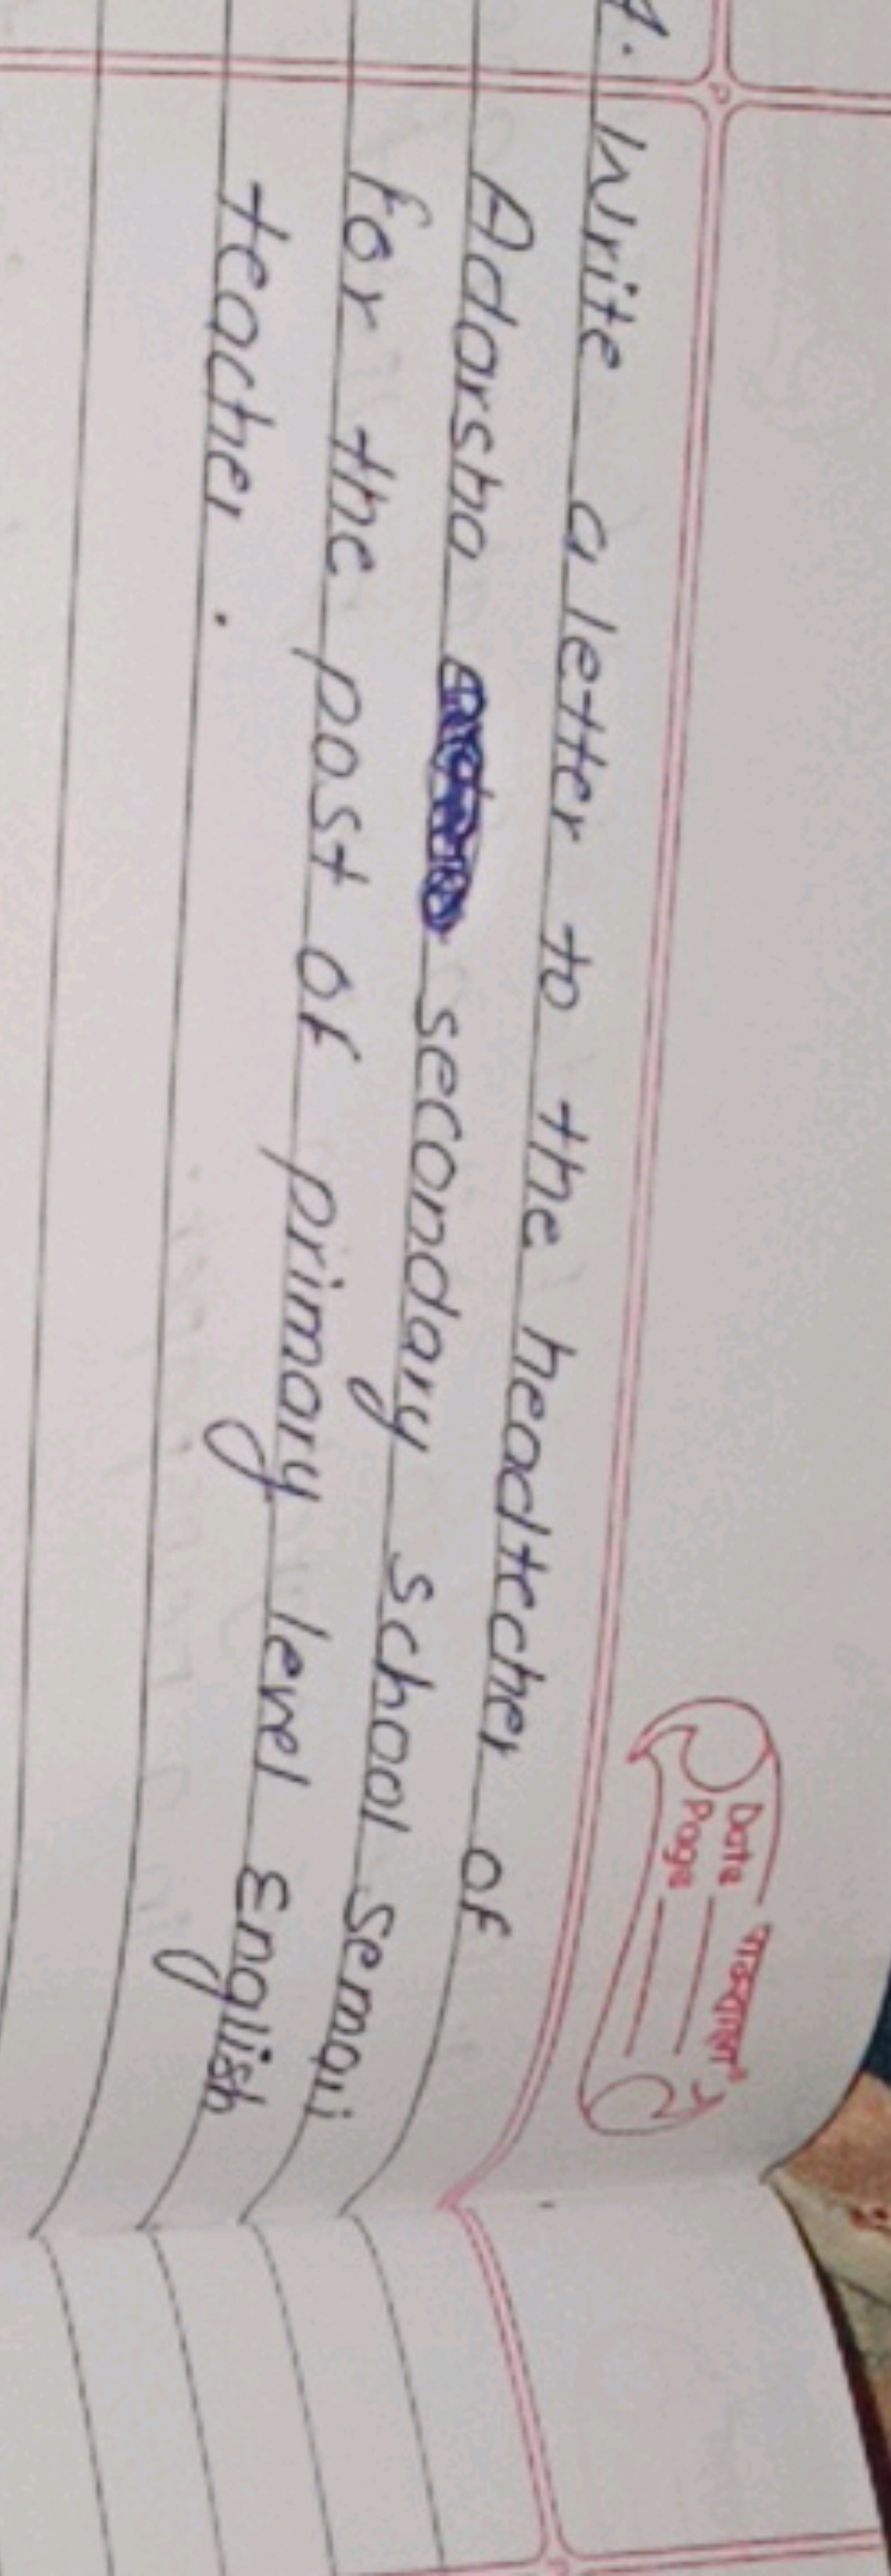 1. Write a letter to the headtecher of
Adarsha secondary school Semari
for the post of primary level English
teacher.
Date
Page